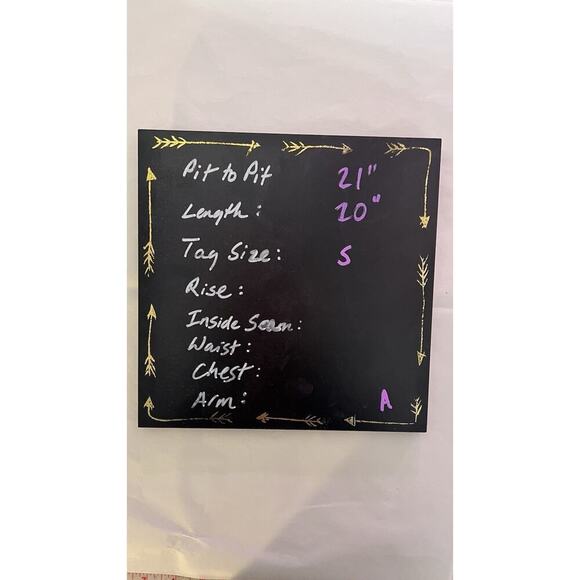 Pit to Pit 21"
Length: 20"
Tag Size: S
Rise:
Inside Seam:
Waist:
Chest:
Arm: A